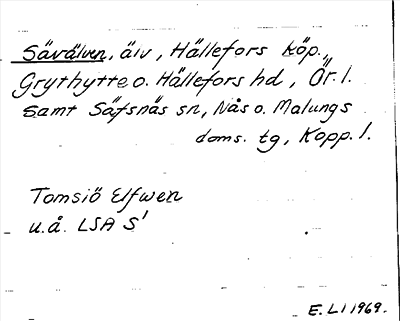 Sävälven, älv, Hällefors köp.,
Grythytte o. Hällefors hd, Ör. l.
samt Säfsnäs sn, Nås o. Malungs
doms. tg, Kopp. l.
Tomsiö Elfwen
u.å. LSA S1
E. LI 1969.